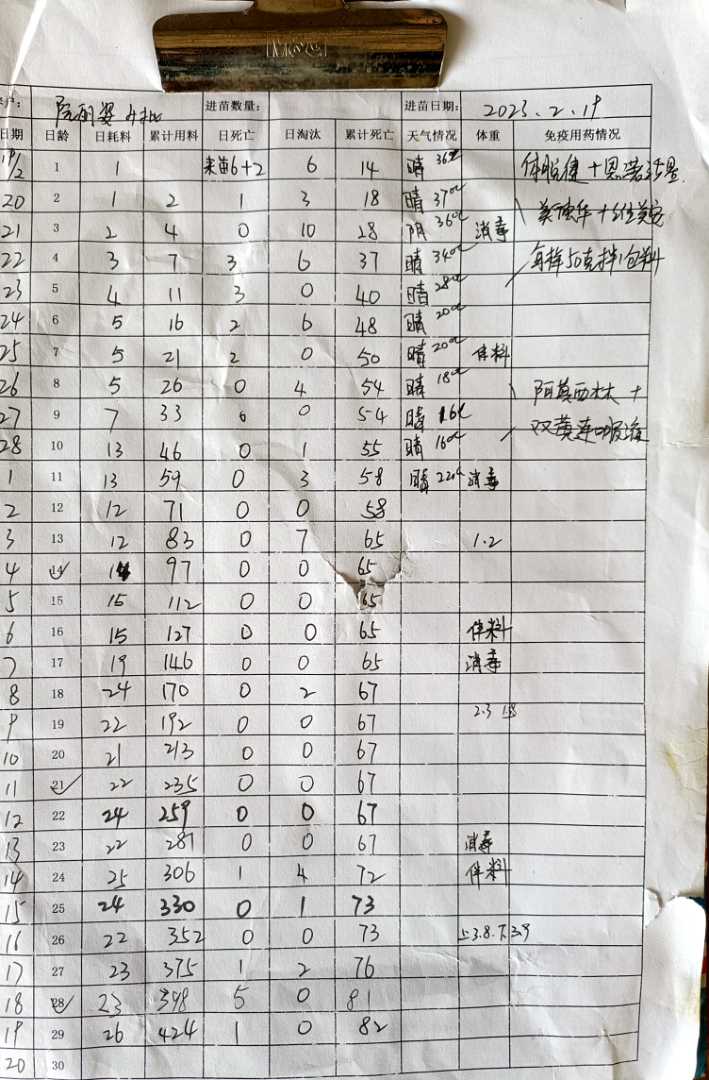 户: 阮丽姿 进苗数量: 进苗日期: 2023.2.19
日期 日龄 日耗料 累计用料 日死亡 日淘汰 累计死亡 天气情况 体重 免疫用药情况
19/2 1 1 来苗6+2 6 14 晴 36℃
20 2 1 2 1 3 18 晴 37℃
21 3 2 4 0 10 28 阴 36℃ 消毒
22 4 3 7 3 6 37 晴 34℃ 每样50克拌1包料
23 5 4 11 3 0 40 晴 28℃
24 6 5 16 2 6 48 晴 20℃
25 7 5 21 2 0 50 晴 20℃ 伴料
26 8 5 26 0 4 54 晴 18℃ 阿莫西林+
27 9 7 33 0 0 54 晴 16℃ 双黄连口服液
28 10 13 46 0 1 55 晴 16℃
1 11 13 59 0 3 58 晴 22℃ 消毒
2 12 12 71 0 0 58
3 13 12 83 0 7 65 1.2
4 14 14 97 0 0 65
5 15 15 112 0 0 65
6 16 15 127 0 0 65 伴料
7 17 19 146 0 0 65 消毒
8 18 24 170 0 2 67
9 19 22 192 0 0 67 2.3
10 20 21 213 0 0 67
11 21 22 235 0 0 67
12 22 24 259 0 0 67
13 23 22 281 0 0 67 消毒
14 24 25 306 1 4 72 伴料
15 25 24 330 0 1 73
16 26 22 352 0 0 73 上3.8.下3.9
17 27 23 375 1 2 76
18 28 23 398 5 0 81
19 29 26 424 1 0 82
20 30